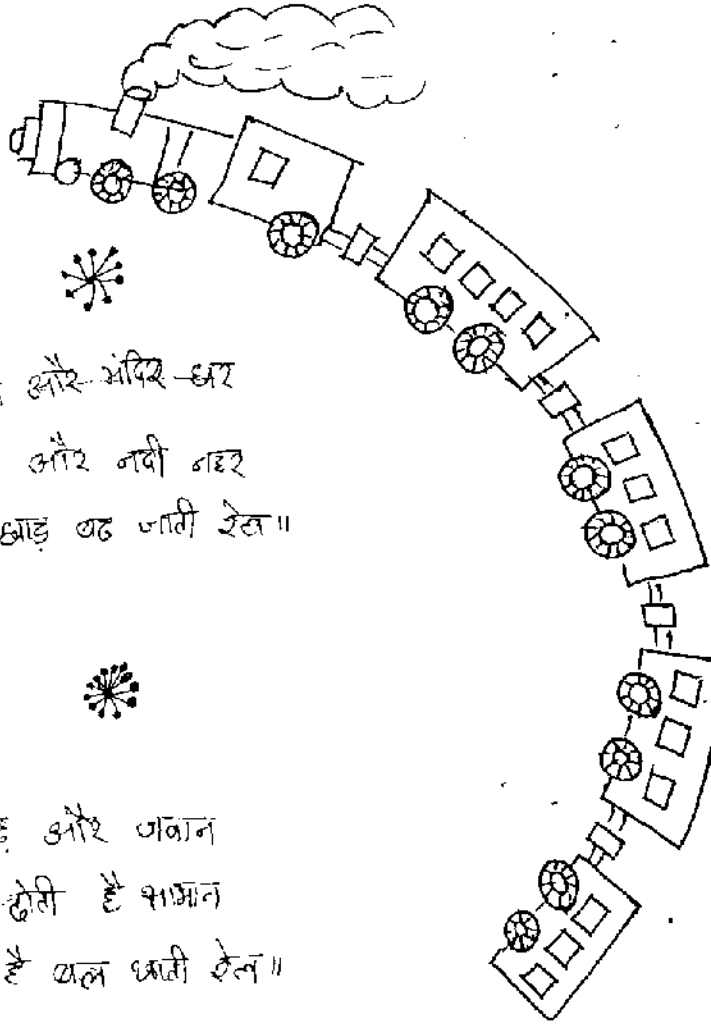 और मंदिर घर
और नदी नहर
छोड़ बढ जाती रेल॥
और जवान
ढोती है सामान
है बल खाती रेल॥